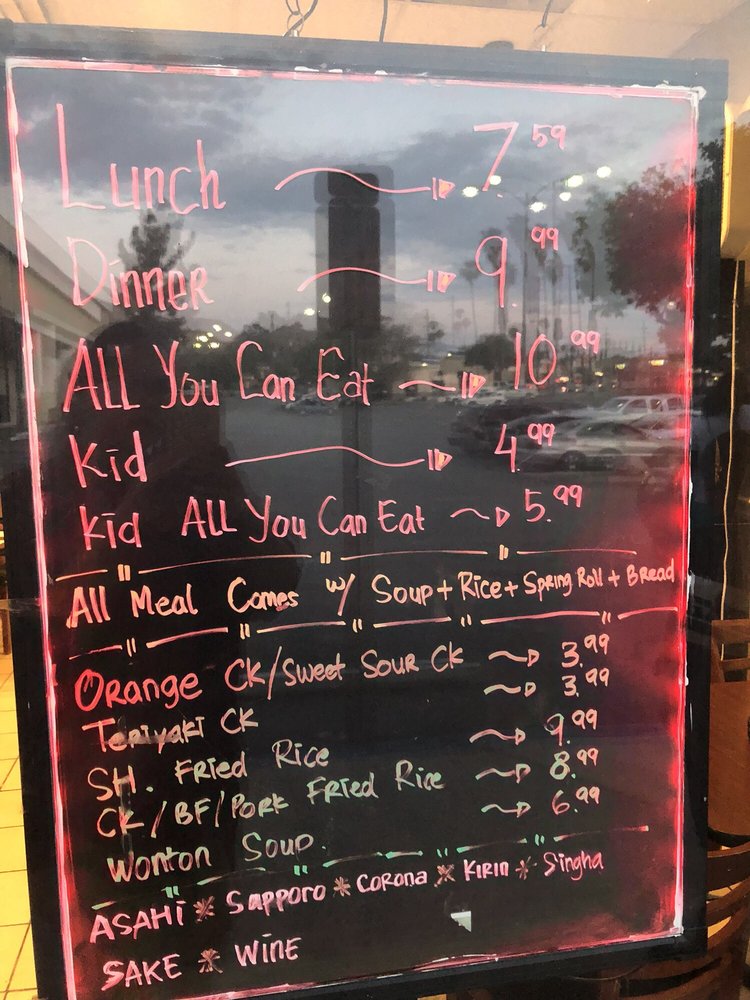 Lunch 7.59
Dinner 9.99
ALL You Can Eat 10.99
Kid 4.99
Kid ALL You Can Eat 5.99
All Meal Comes w/ Soup + Rice + Spring Roll + Bread
Orange CK/Sweet Sour CK 3.99
Teriyaki CK 3.99
SH. Fried Rice 9.99
CK/BF/Pork Fried Rice 8.99
Wonton Soup. 6.99
ASAHI * Sapporo * Corona * Kirin * Singha
SAKE * Wine